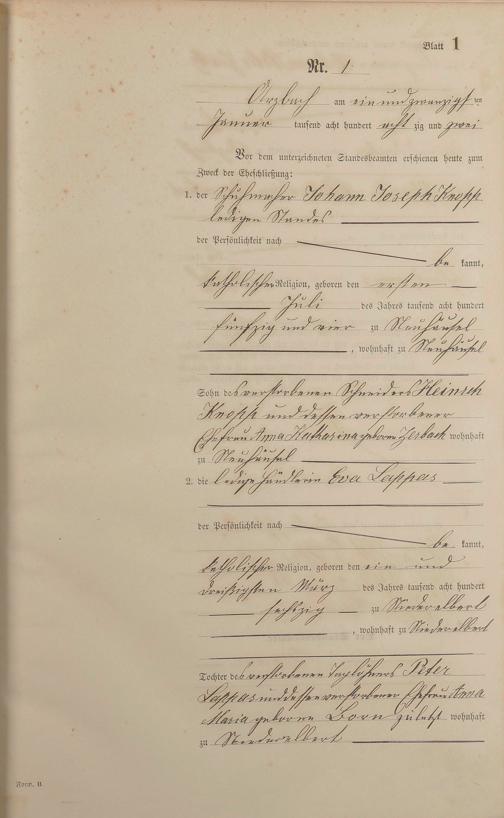 Blatt 1
Nr. 1
Arzbach am ein und zwanzigsten
Januar tausend acht hundert acht zig und zwei
Vor dem unterzeichneten Standesbeamten erschienen heute zum
Zweck der Eheschließung:
1. der Schuhmacher Johann Joseph Knopp
ledigen Standes
der Persönlichkeit nach
be kannt,
katholischer Religion, geboren den ersten
Juli des Jahres tausend acht hundert
fünfzig und vier zu Neuhäusel
, wohnhaft zu Neuhäusel
Sohn des verstorbenen Schneiders Heinrich
Knopp und dessen verstorbener
Ehefrau Anna Katharina geborene Zerbach wohnhaft
zu Neuhäusel
2. die ledige Händlerin Eva Lappas
der Persönlichkeit nach
be kannt,
katholischer Religion, geboren den ein und
dreißigsten März des Jahres tausend acht hundert
sechszig zu Niederelbert
, wohnhaft zu Niederelbert
Tochter des verstorbenen Taglöhners Peter
Lappas und dessen verstorbener Ehefrau Anna
Maria geborne Born zuletzt wohnhaft
zu Niederelbert
Form. B